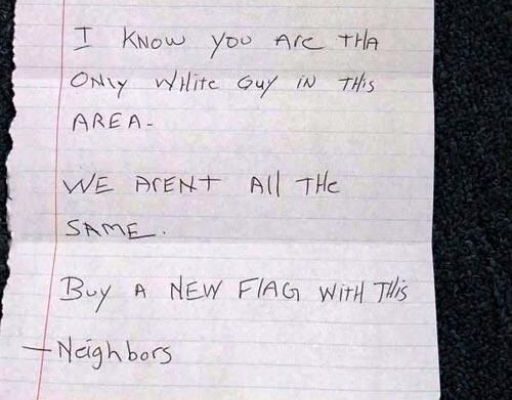 I KNOW YOU ARE THA
ONLY WHITE GUY IN THIS
AREA-
WE ARENT All THE
SAME.
Buy A NEW FlAG WITH THIS
-Neighbors